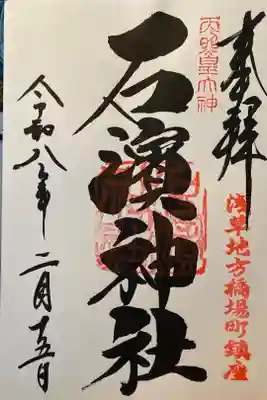 奉拝
天照皇大神
浅草地方橋場町鎮座
石濱神社
令和八年二月十五日